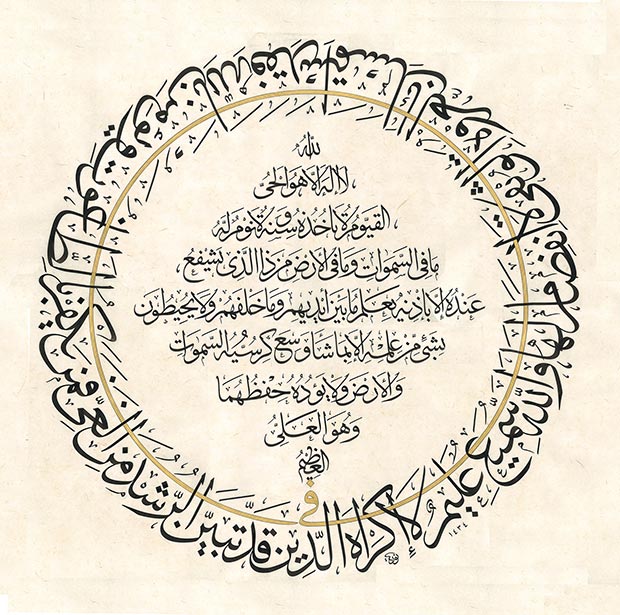 الله
لا اله الا هو الحي
القيوم لا تأخذه سنة ولا نوم له
ما في السموات وما في الارض من ذا الذي يشفع
عنده الا باذنه يعلم ما بين ايديهم وما خلفهم ولا يحيطون
بشيء من علمه الا بما شاء وسع كرسيه السموات
والارض ولا يؤده حفظهما
وهو العلي
العظيم
لا إكراه في الدين قد تبين الرشد من الغي فمن يكفر بالطاغوت ويؤمن بالله فقد استمسك بالعروة الوثقى لا انفصام لها والله سميع عليم
١٤٣٤